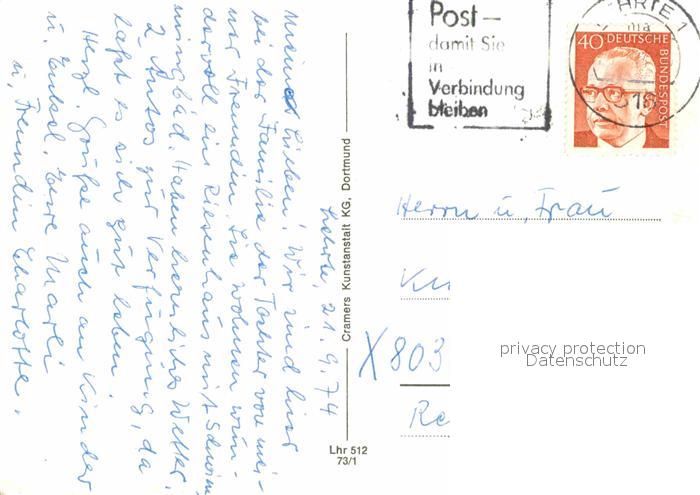 Lehrte, 21.9.74
Meine Lieben! Wir sind hier
bei der Familie der Tochter von mei-
ner Freundin. Sie wohnen wun-
dervoll ein Riesenhaus mit Schwim
mingbad. Haben herrliches Wetter.
2 Autos zur Verfügung, da
läßt es sich gut leben.
Herzl. Grüße auch an Kinder
u. Enkel. Eure Marli
u. Freundin Charlotte.
Cramers Kunstanstalt KG, Dortmund
Lhr 512
73/1
Post –
damit Sie
in
Verbindung
bleiben
HRTE 1
ma
40 DEUTSCHE
BUNDESPOST
Herrn u. Frau
X 803
Re
privacy protection
Datenschutz